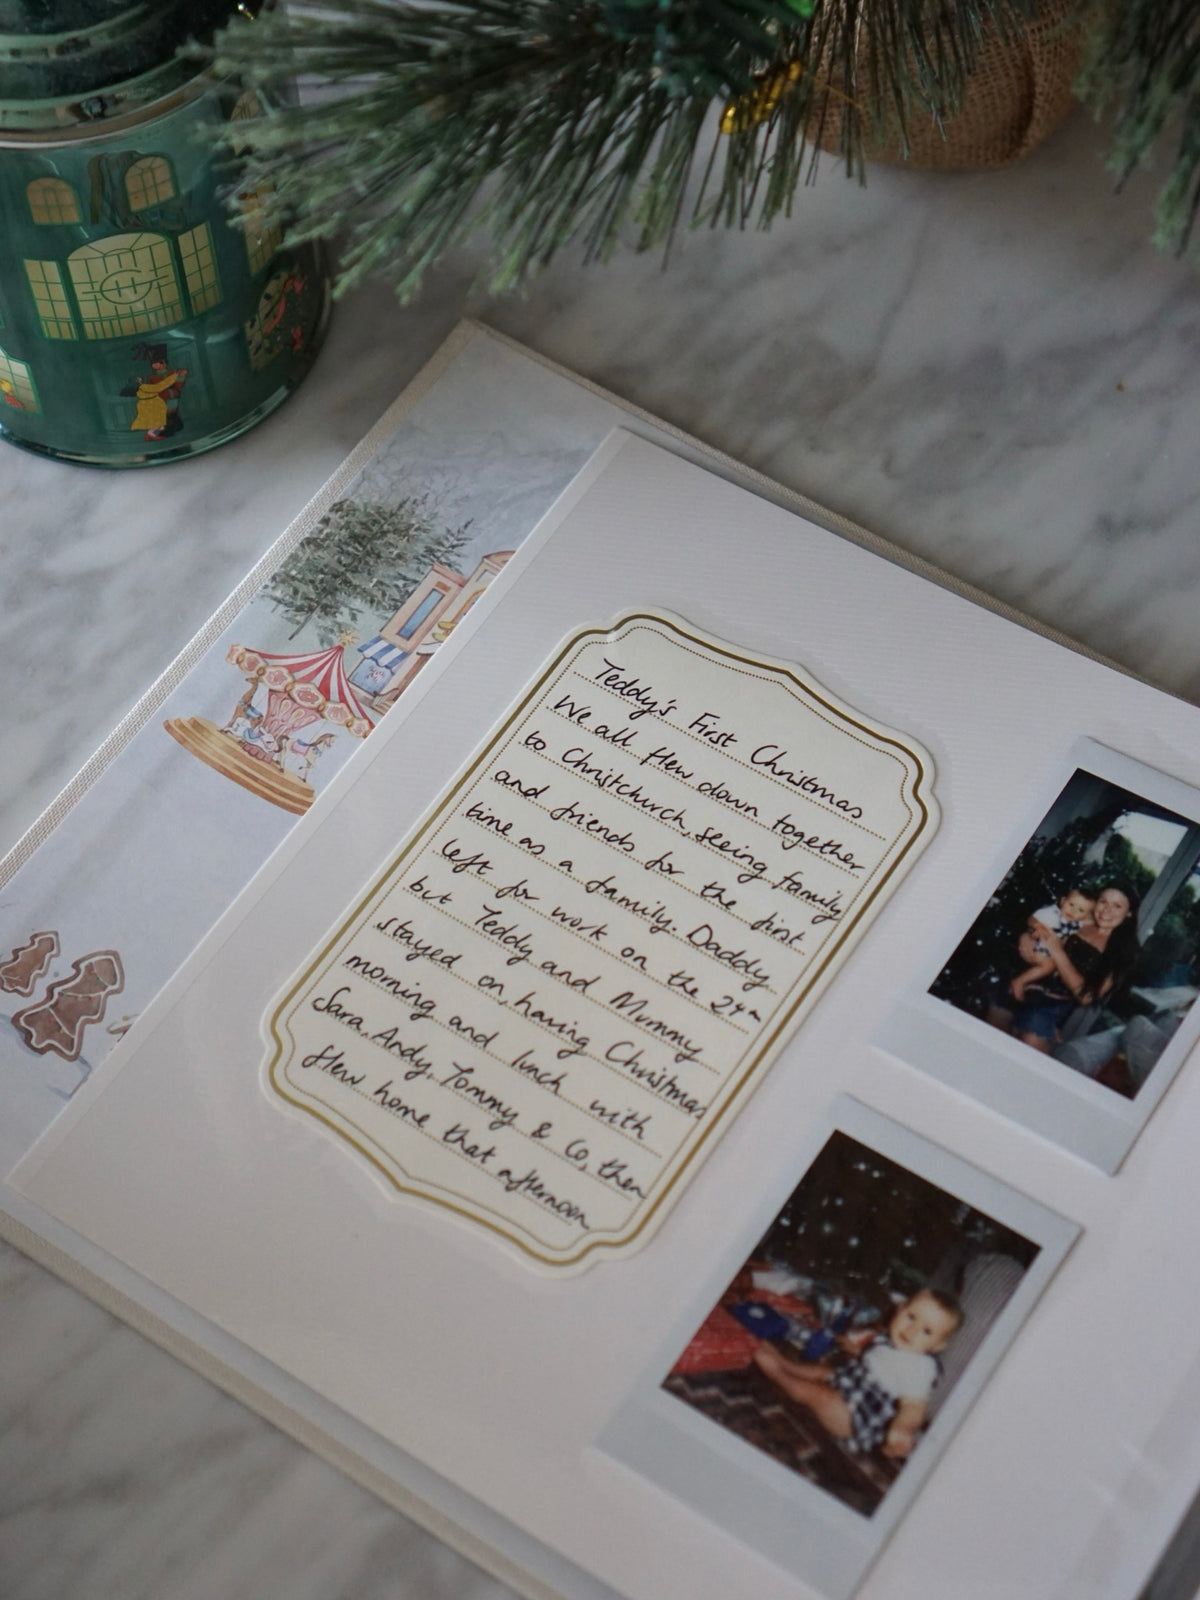 Teddy's First Christmas
We all flew down together
to Christchurch, seeing family
and friends for the first
time as a family. Daddy
left for work on the 24th
but Teddy and Mummy
stayed on, having Christmas
morning and lunch with
Sara, Andy, Tommy & Co, then
flew home that afternoon